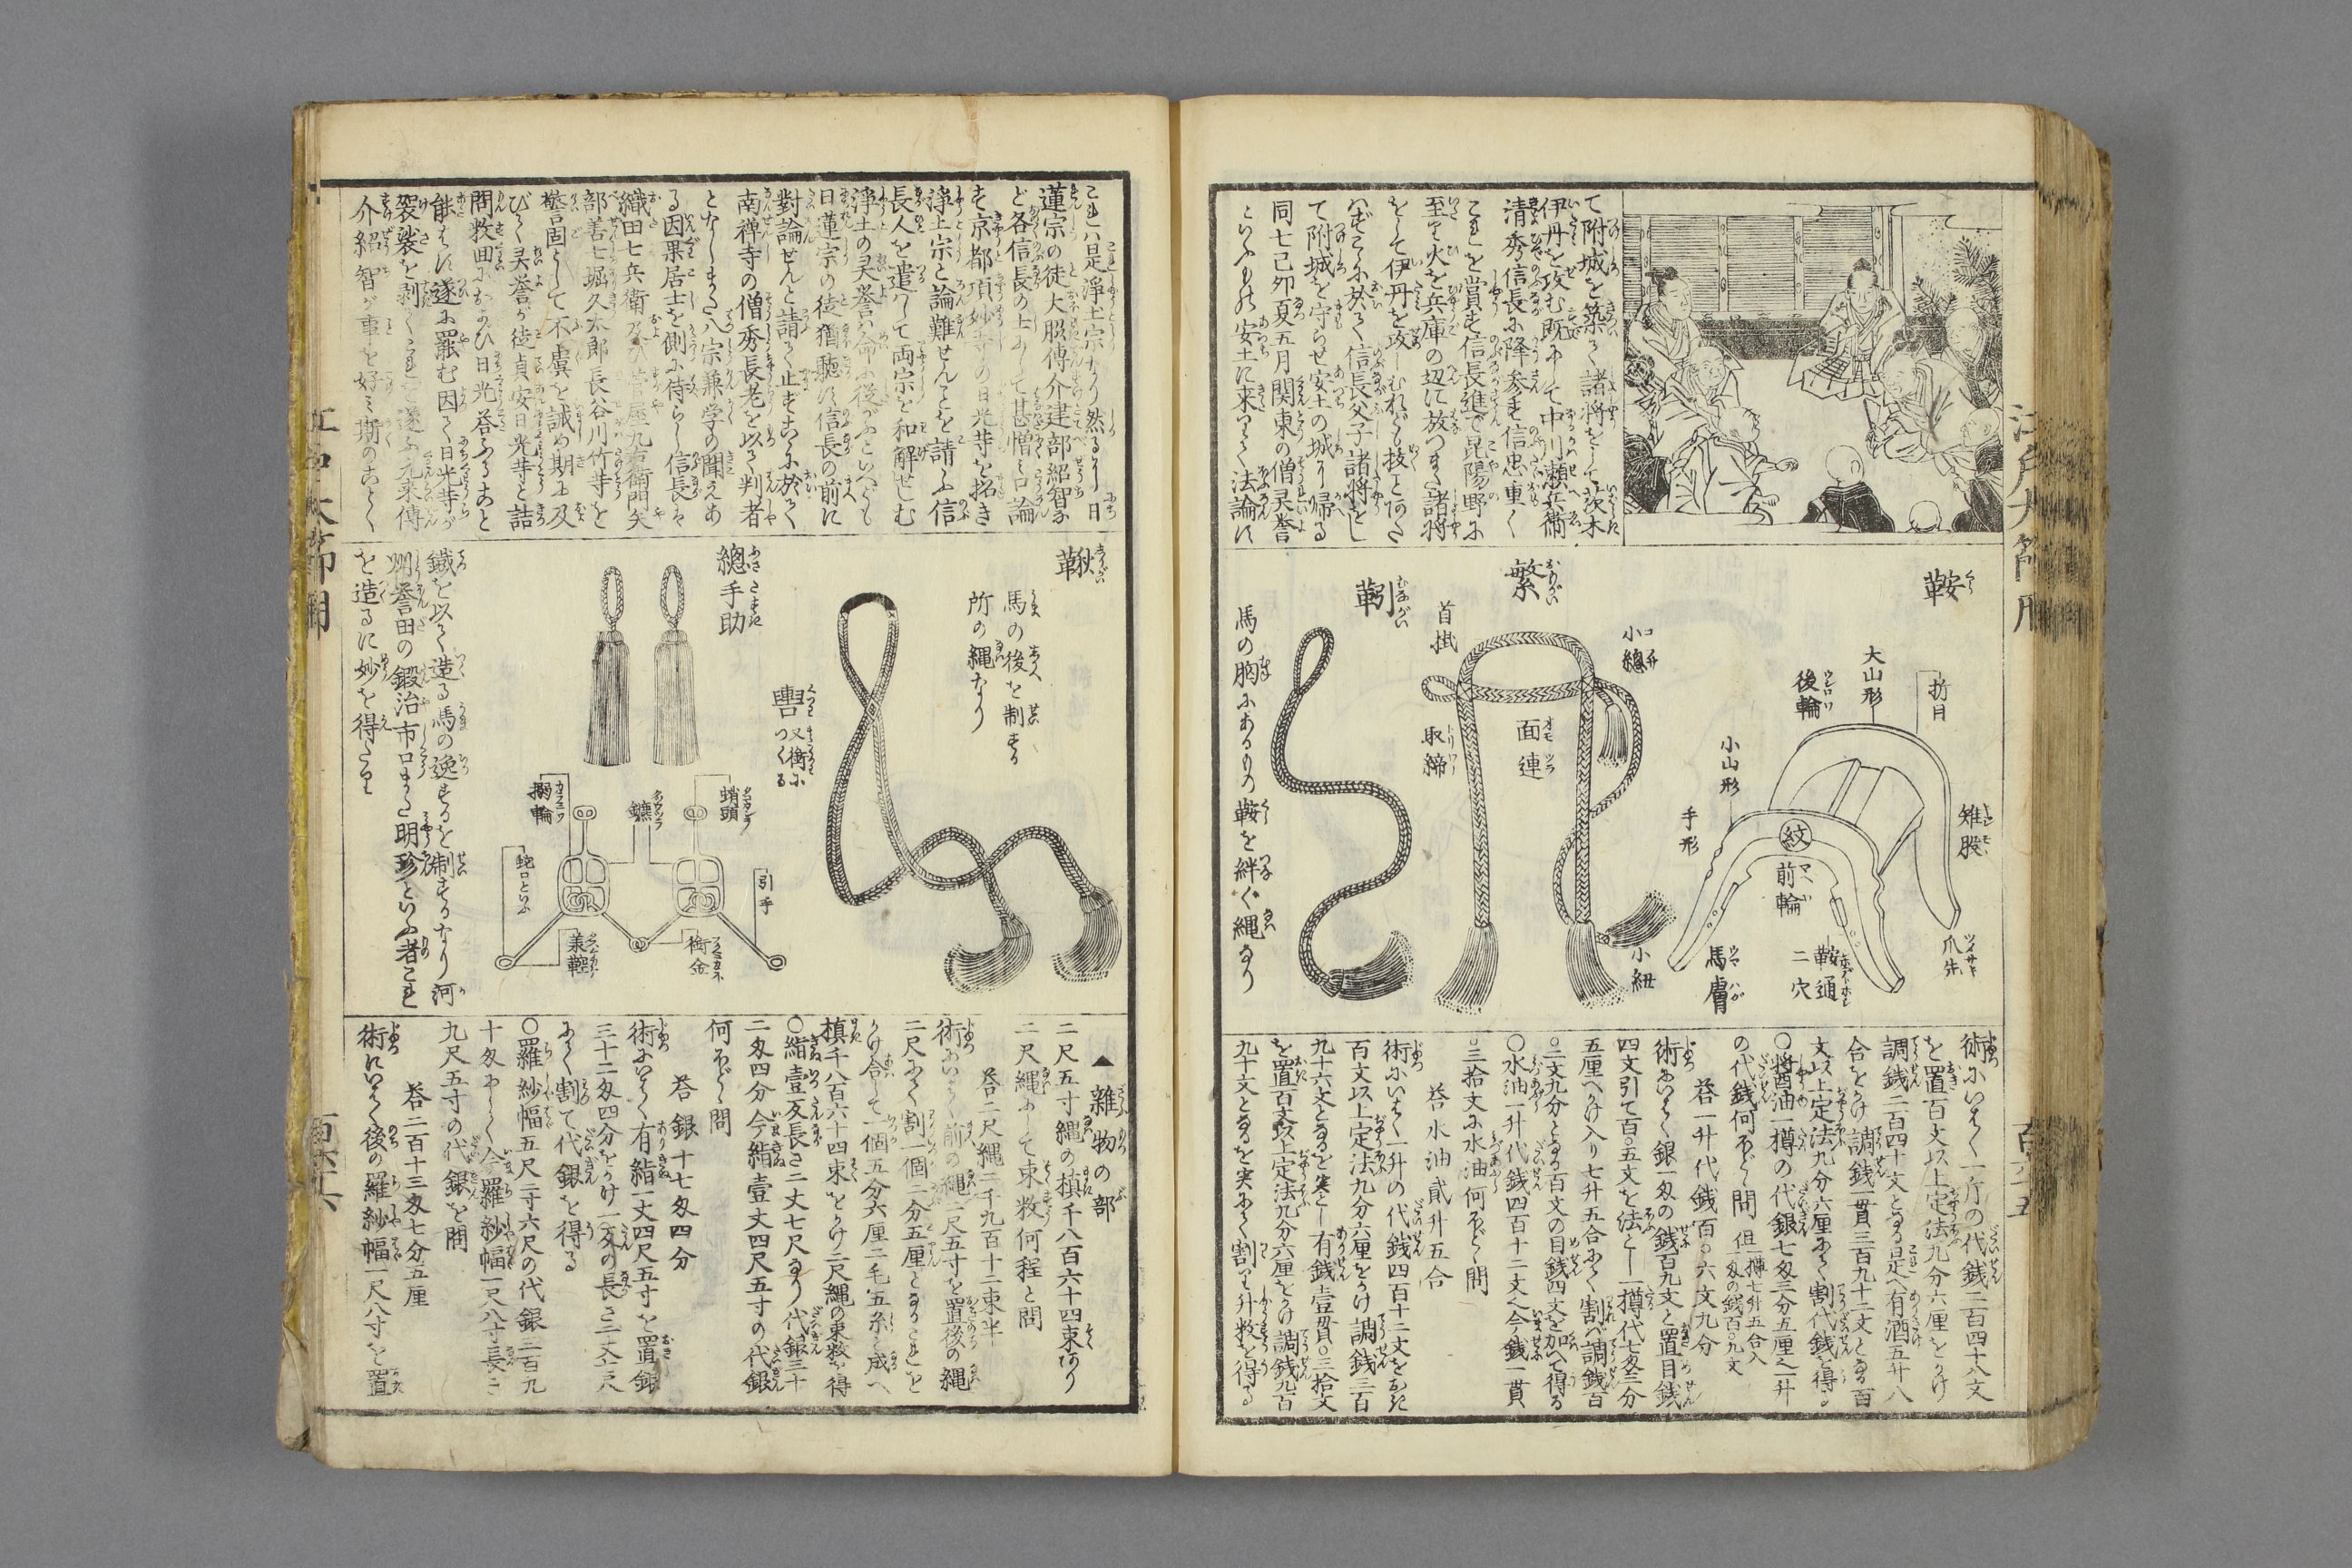 て附城を築て諸将をして茨木
伊丹を攻む既にして中川瀬兵衛
清秀信長に降参す信忠重く
これを賞す信長進で昆陽野に
至り火を兵庫の辺に放つまた諸将
をして伊丹を攻しむれども抜ことあた
はずこゝに於て信長父子諸将をし
て附城を守らせ安土の城に帰る
同七己卯夏五月関東の僧霊誉
といふもの安土に来りて法論に
鞍
折目
大山形
後輪
小山形
手形
雉股
紋
前輪
爪先
鞍通
二穴
馬膚
繁
小總
首掛
面連
取締
小紐
靷
馬の胸にあるもの鞍を絆ぐ縄なり
術にいはく一斤の代銭二百四十八文
を置百文以上定法九分六厘をかけ
調銭二百四十文となる是へ有酒五升八
合をかけ調銭一貫三百九十二文となる百
文以上定法九分六厘にて割代銭を得る
〇醤油一樽の代銀七匁三分五厘之一升
の代銭何ほどゝ問 但一樽七升五合入一匁の銭百〇九文
答一升代銭百〇六文九分
術にいはく銀一匁の銭百九文と置目銭
四文引て百〇五文を法とし一樽代七匁三分
五厘へかけ入り七升五合にて割ば調銭百
〇二文九分となる百文の目銭四文を加へて得る
〇水油一升代銭四百十二文にて今銭一貫
〇三拾文に水油何ほどゝ問
答水油貳升五合
術にいはく一升の代銭四百十二文をおき
百文以上定法九分六厘をかけ調銭三百
九十六文となるを実とし有銭壹貫〇三拾文
を置百文以上定法九分六厘をかけ調銭九百
九十文となるを実にて割り升数を得る
百六十五
これハ是浄土宗なり然るに日
蓮宗の徒大脇傳介建部紹智な
ど各信長の士にて甚憎み口論
す京都頂妙寺の日光寺を招き
浄土宗と論難せんことを請ふ信
長人を遣ハして両宗を和解せしむ
浄土の霊誉ハ命に従がふといへども
日蓮宗の徒猶聴ず信長の前に
對論せんと請て止ずこゝに於て
南禅寺の僧秀長老を以て判者
となしまた八宗兼学の聞えあ
る因果居士を側に侍らし信長ハ
織田七兵衛及び菅屋九右衛門矢
部善七堀久太郎長谷川竹等を
警固として不虞を誡め期に及
びて霊誉が徒貞安日光等と詰
問救田におよび日光答ふること
能はず遂に罷む因て日光等が
袈裟を剥ぐこれを遂ふ元来傳
介紹智が事を好み斯のごとく
鞦
馬の後を制する
所の縄なり
總手助
轡 又衛につくる
蛸頭
鑣
搦輪
蛇口といふ
引手
銜金
兼鞚
鐡を以て造る馬の逸するを制するなり河
州誉田の鍛冶市口また明珍といふ者これ
を造るに妙を得たり
▲雜物の部
二尺五寸縄の槙千八百六十四束あり
二尺縄にして束数何程と問
答二尺縄二千九百十二束半
術にいはく前の縄二尺五寸を置後の縄
二尺にて割一個二分五厘となるこれを
かけ合して一個五分六厘二毛五糸と成へ
槙千八百六十四束をかけ二尺縄の束数を得
〇絹壹疋長さ二丈七尺なり代銀三十
二匁四分今絹壹丈四尺五寸の代銀
何ほどゝ問
答銀十七匁四分
術にいはく有絹一丈四尺五寸を置銀
三十二匁四分をかけ一疋の長さ二丈七尺
にて割て代銀を得る
〇羅紗幅五尺二寸六尺の代銀二百九
十匁にして今羅紗幅一尺八寸長さ
九尺五寸の代銀を問
答二百十三匁七分五厘
術にいはく後の羅紗幅一尺八寸を置
百六十六